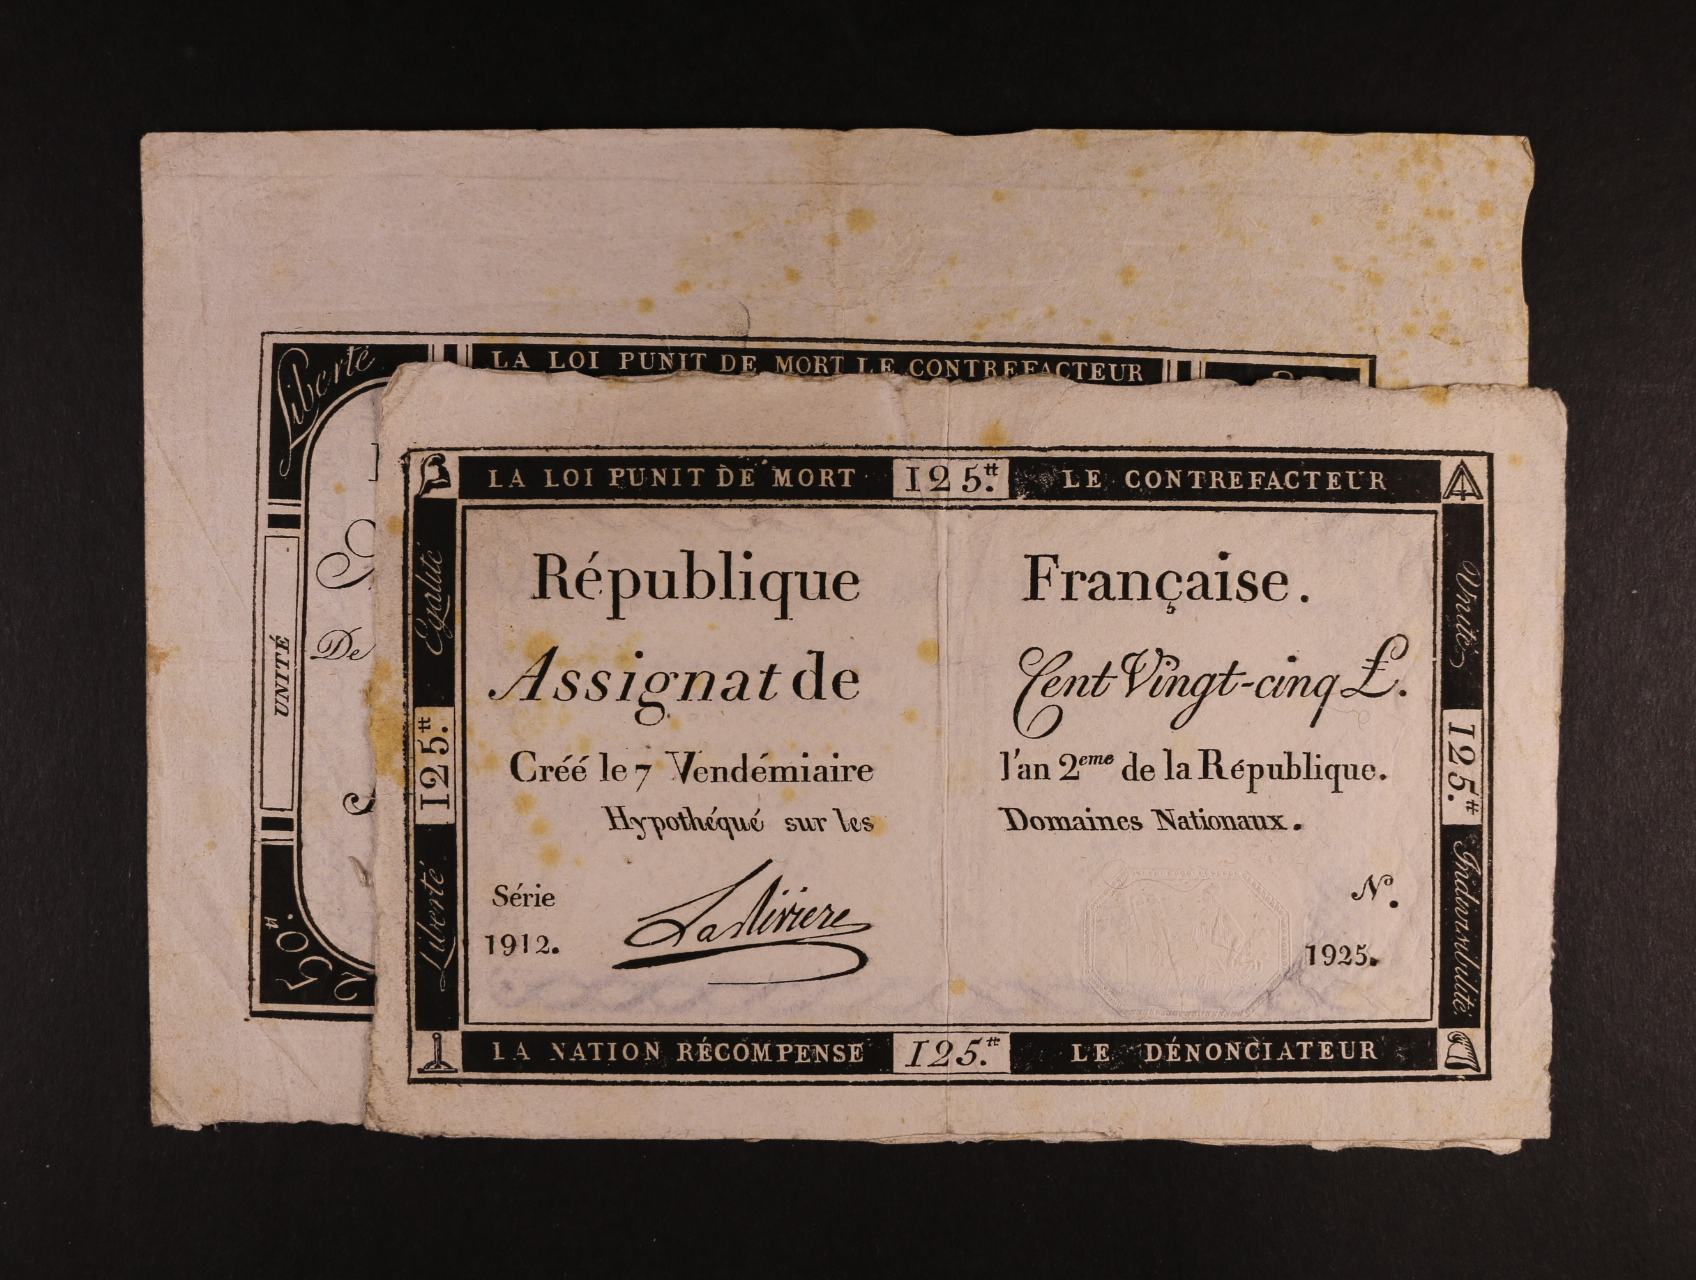 LA LOI PUNIT DE MORT LE CONTREFACTEUR
Liberté
UNITÉ
De
250.tt
LA LOI PUNIT DE MORT 125.tt LE CONTREFACTEUR
Egalité
125.tt
Liberté
Unité
125.tt
Indivisibilité
République Française.
Assignat de Cent Vingt-cinq £.
Créé le 7 Vendémiaire l'an 2eme de la République.
Hypothéqué sur les Domaines Nationaux.
Série No.
1912. LaRiviere 1925.
LA NATION RÉCOMPENSE 125.tt LE DÉNONCIATEUR